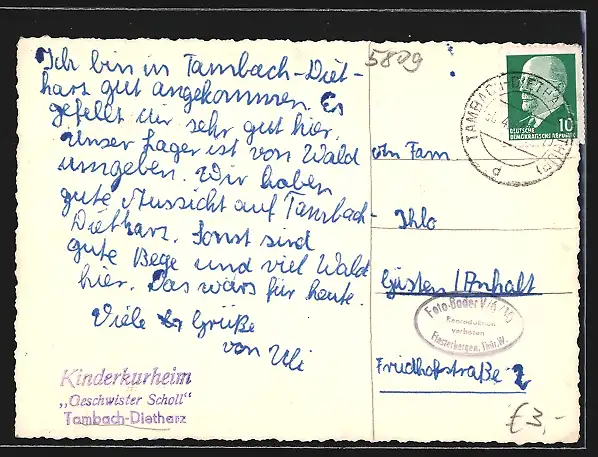 Ich bin in Tambach-Diet-
harz gut angekommen. Es
gefellt mir sehr gut hier.
Unser Lager ist von Wald
umgeben. Wir haben
gute Aussicht auf Tambach-
Dietharz. Sonst sind
gute Bege und viel Wald
hier. Das wärs für heute.
Viele Grüße
von Uli
Kinderkurheim
„Geschwister Scholl"
Tambach-Dietharz
5809
TAMBACH-DIETHARZ
d
DEUTSCHE
DEMOKRATISCHE REPUBLIK
10
Fam
Ihlo
Güsten / Anhalt
Foto-Bader
Reproduktion
verboten
Finsterbergen, Thür. W.
Friedhofstraße 2
€3,-